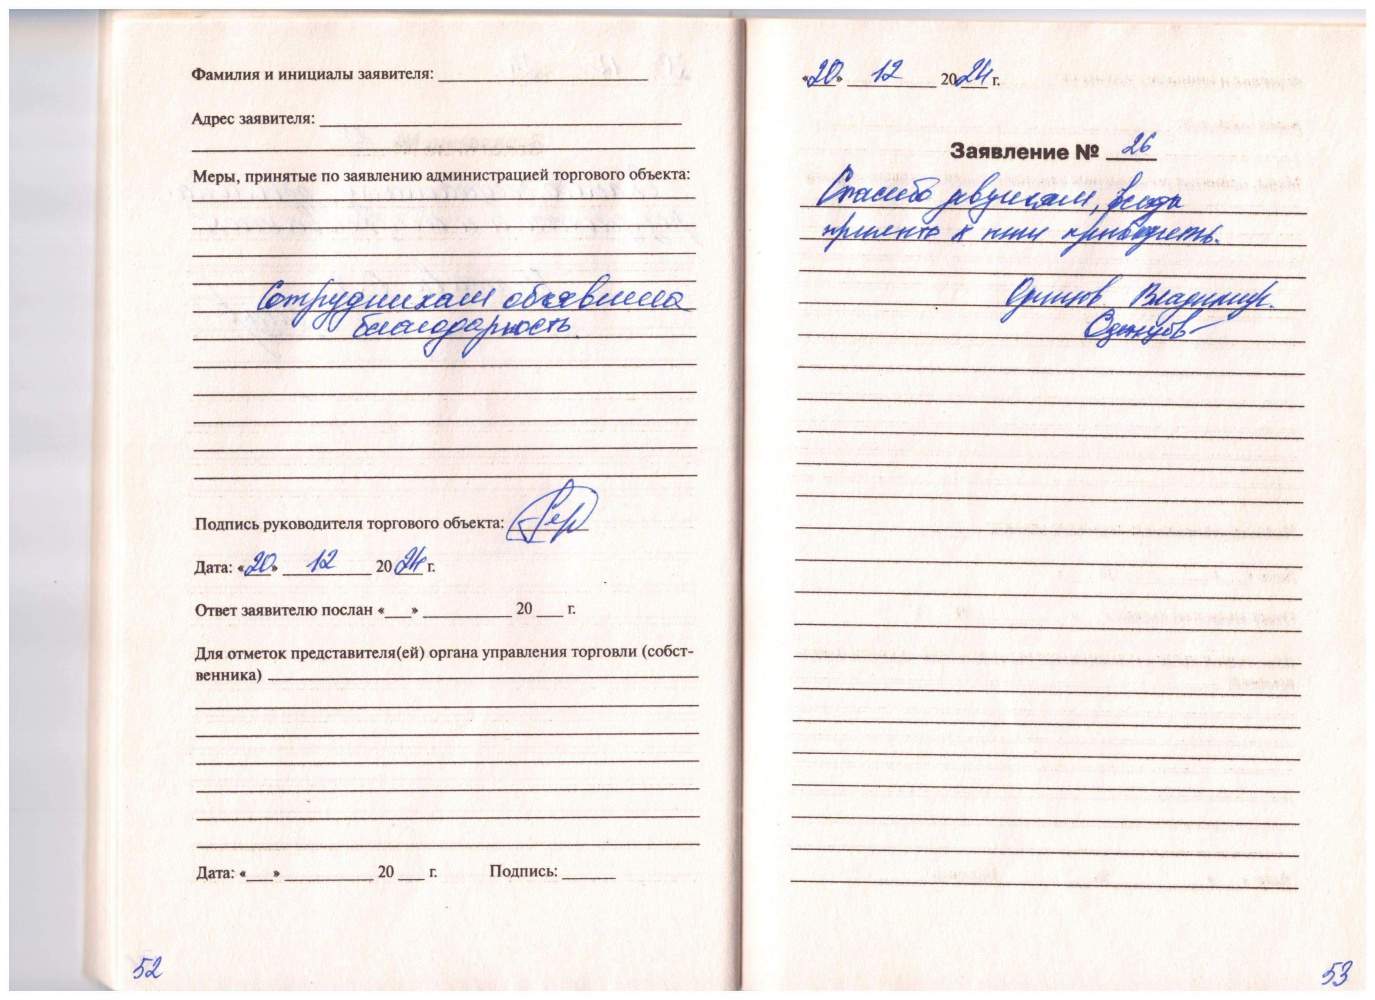 Фамилия и инициалы заявителя:
Адрес заявителя:
Меры, принятые по заявлению администрацией торгового объекта:
Сотрудникам объявлена
благодарность.
Подпись руководителя торгового объекта:
Дата: «20» 12 2024 г.
Ответ заявителю послан «___» ___ 20 ___ г.
Для отметок представителя(ей) органа управления торговли (собст-
венника)
Дата: «___» ___ 20 ___ г. Подпись: ___
52
«20» 12 2024 г.
Заявление № 26
Спасибо девушкам, всегда
приятно к ним приходить.
Одинцов Владимир.
53